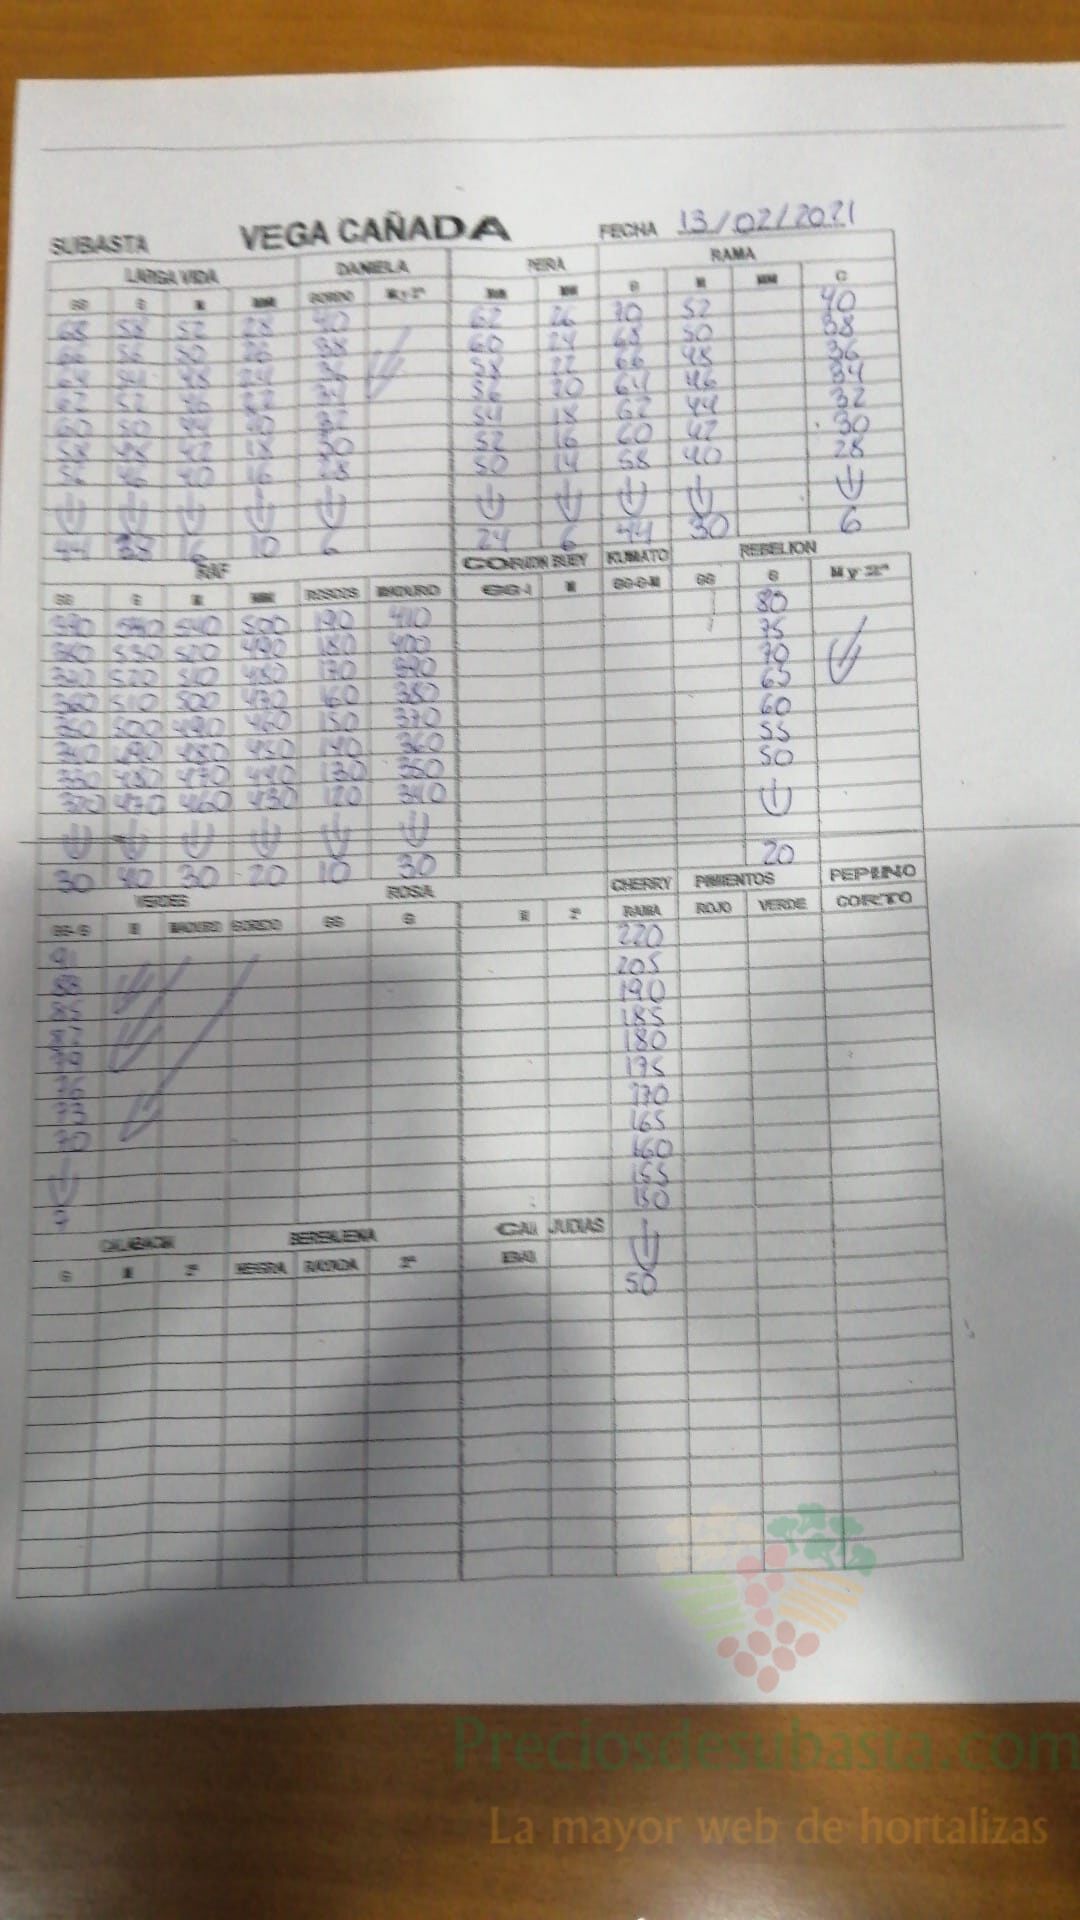 SUBASTA VEGA CAÑADA FECHA 13/02/2021
LARGA VIDA DANIELA PERA RAMA
GG G M MM GORDO M y 2ª MM G M MM C
68 58 52 28 40 62 26 70 52 40
66 56 50 26 38 60 24 68 50 38
64 54 48 24 36 58 22 66 48 36
62 52 46 22 34 56 20 64 46 34
60 50 44 20 32 54 18 62 44 32
58 48 42 18 30 52 16 60 42 30
56 46 40 16 28 50 14 58 40 28
44 38 16 10 6 24 6 44 30 6
RAF CORAZON BUEY KUMATO REBELION
GG G M MM ROSCOS MADURO M GG-G-M GG G M y 2ª
540 500 190 410 80
530 490 180 400 75
520 510 480 170 390 70
360 510 500 470 160 380 65
350 500 490 460 150 370 60
340 490 480 450 140 360 55
330 480 470 440 130 350 50
320 470 460 430 120 340
30 40 30 20 10 30 20
VERDES ROSA CHERRY PIMIENTOS PEPINO
GG-G M MADURO GORDO GG G M 2ª RAMA ROJO VERDE CORTO
91 220
88 205
85 190
82 185
79 180
76 175
73 170
70 165
160
155
150
CALABACIN BERENJENA JUDIAS
G M 2ª NEGRA RAYADA 2ª
50
Preciosdesubasta.com
La mayor web de hortalizas